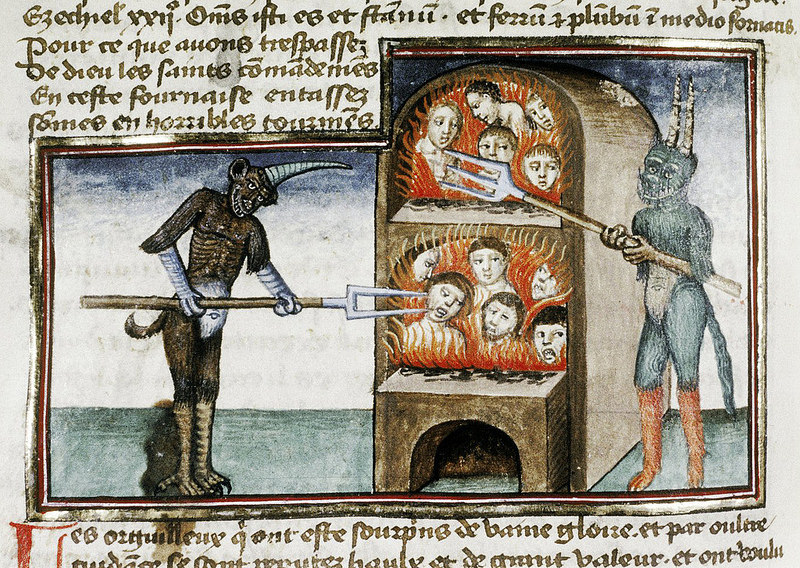 Ezechiel xxijº. Om̄s isti es et stānū. et ferrū ⁊ plūbū ī medio fornacis.
Pour ce que auons trespassez
De dieu les saints cōmādemēs
En ceste fournaise entassez
sōmes en horribles tourmēs.
Les orguilleux q̄ ont este sourprins de vaine gloire. et par oultre
cuidāce se sont reputez haulx et de grant valour. et ont voulu